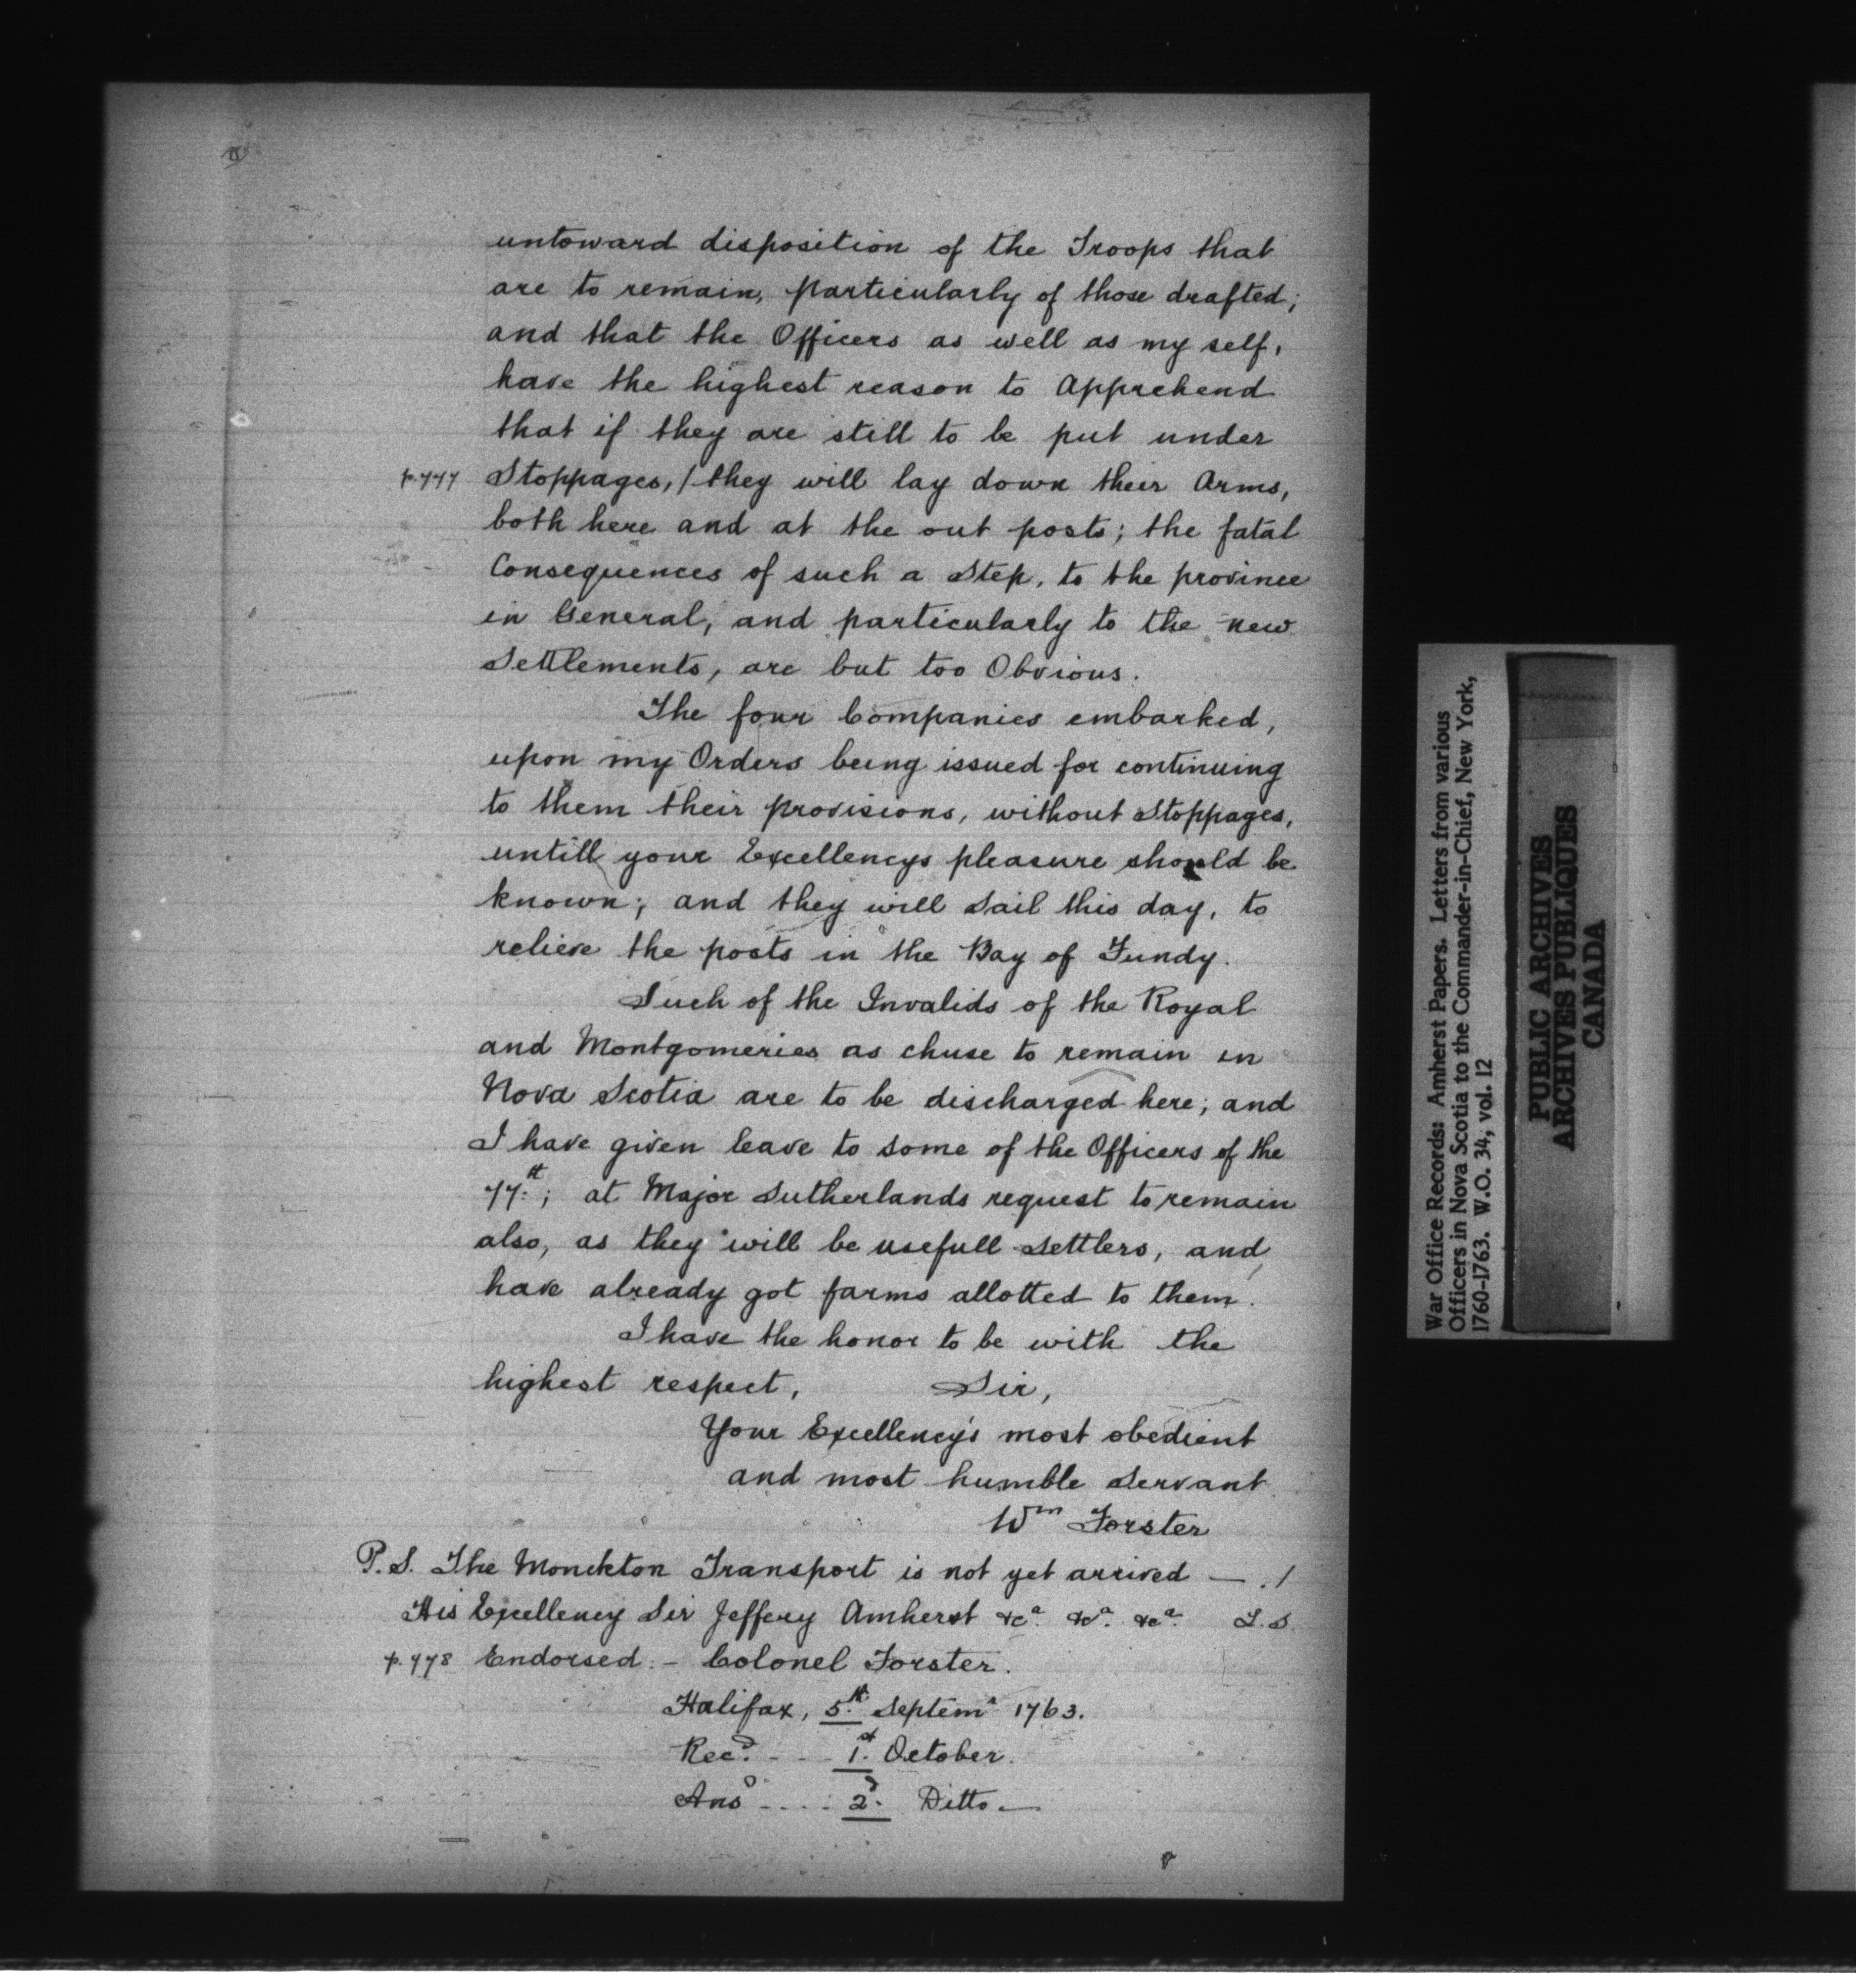 untoward disposition of the Troops that
are to remain, particularly of those drafted;
and that the Officers as well as my self,
have the highest reason to Apprehend
that if they are still to be put under
p.477 Stoppages, / they will lay down their Arms,
both here and at the out posts; the fatal
Consequences of such a Step, to the province
in General, and particularly to the new
Settlements, are but too Obvious.
The four Companies embarked,
upon my Orders being issued for continuing
to them their provisions, without Stoppages,
untill your Excellencys pleasure should be
known; and they will sail this day, to
relieve the posts in the Bay of Fundy.
Such of the Invalids of the Royal
and Montgomeries as chuse to remain in
Nova Scotia are to be discharged here; and
I have given leave to some of the Officers of the
77th; at Major Sutherlands request to remain
also, as they will be usefull Settlers, and
have already got farms allotted to them.
I have the honor to be with the
highest respect, Sir,
Your Excellency's most obedient
and most humble Servant
Wm Forster
P.S. The Monckton Transport is not yet arrived — . /
His Excellency Sir Jeffery Amherst &ca. &ca. &ca.
p.478 Endorsed. - Colonel Forster.
Halifax, 5th Septemr 1763.
Recd. - - - 1st. October.
Ansd - - - - 2d. Ditto. —
War Office Records: Amherst Papers. Letters from various
Officers in Nova Scotia to the Commander-in-Chief, New York,
1760-1763. W.O. 34, vol. 12
PUBLIC ARCHIVES
ARCHIVES PUBLIQUES
CANADA